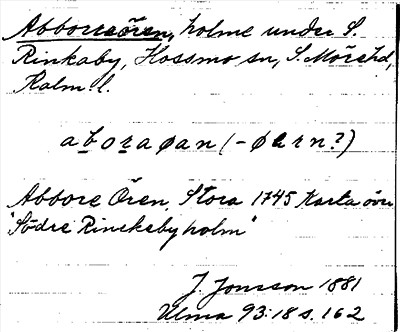 Abboreören, holme under S.
Rinkaby, Hossmo sn, S. Möre hd,
Kalm l.
aboraøan (-øarn?)
Abbore Ören, Stora 1745 Karta över
"Södre Rinckeby holm"
J. Jonsson 1881
Ulma 93:18 s. 162